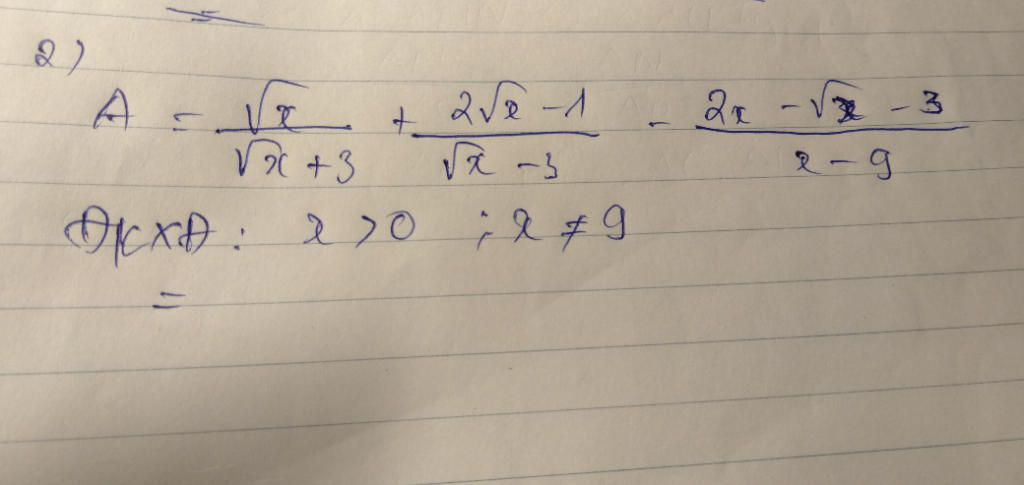 2)
A = √x / (√x + 3) + (2√x - 1) / (√x - 3) - (2x - √x - 3) / (x - 9)
ĐKXĐ: x > 0 ; x ≠ 9
=